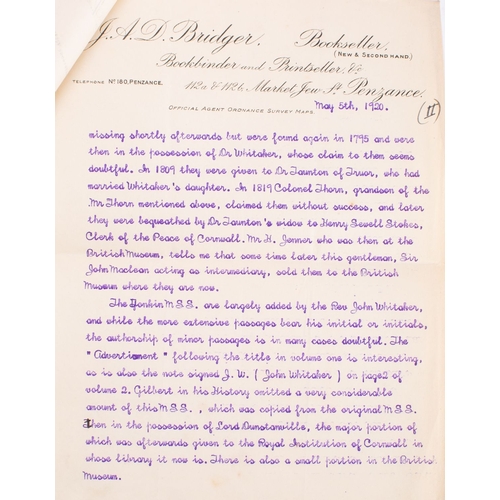 J.A.D. Bridger. Bookseller.
(NEW & SECOND HAND.)
Bookbinder and Printseller, &c
TELEPHONE Nº 180, PENZANCE. 112a & 112b Market Jew St. Penzance.
OFFICIAL AGENT ORDNANCE SURVEY MAPS
May 5th, 1920.
(II)
missing shortly afterwards but were found again in 1795 and were
then in the possession of Dr Whitaker, whose claim to them seems
doubtful. In 1809 they were given to Dr Taunton of Truor, who had
married Whitaker's daughter. In 1819 Colonel Thorn, grandson of the
Mr Thorn mentioned above, claimed them without success, and later
they were bequeathed by Dr Taunton's widow to Henry Sewell Stokes,
Clerk of the Peace of Cornwall. Mr H. Jenner who was then at the
British Museum, tells me that some time later this gentleman, Sir
John Maclean acting as intermediary, sold them to the British
Museum where they are now.
The Tonkin M.S.S. are largely added by the Rev John Whitaker,
and while the more extensive passages bear his initial or initials,
the authorship of minor passages is in many cases doubtful. The
"Advertiement" following the title in volume one is interesting,
as is also the note signed J.W. ( John Whitaker ) on page2 of
volume 2. Gilbert in his History omitted a very considerable
amount of this M.S.S. , which was copied from the original M.S.S.
then in the possession of Lord Dunstanville, the major portion of
which was afterwards given to the Royal Institution of Cornwall in
whose library it now is. There is also a small portion in the British
Museum.